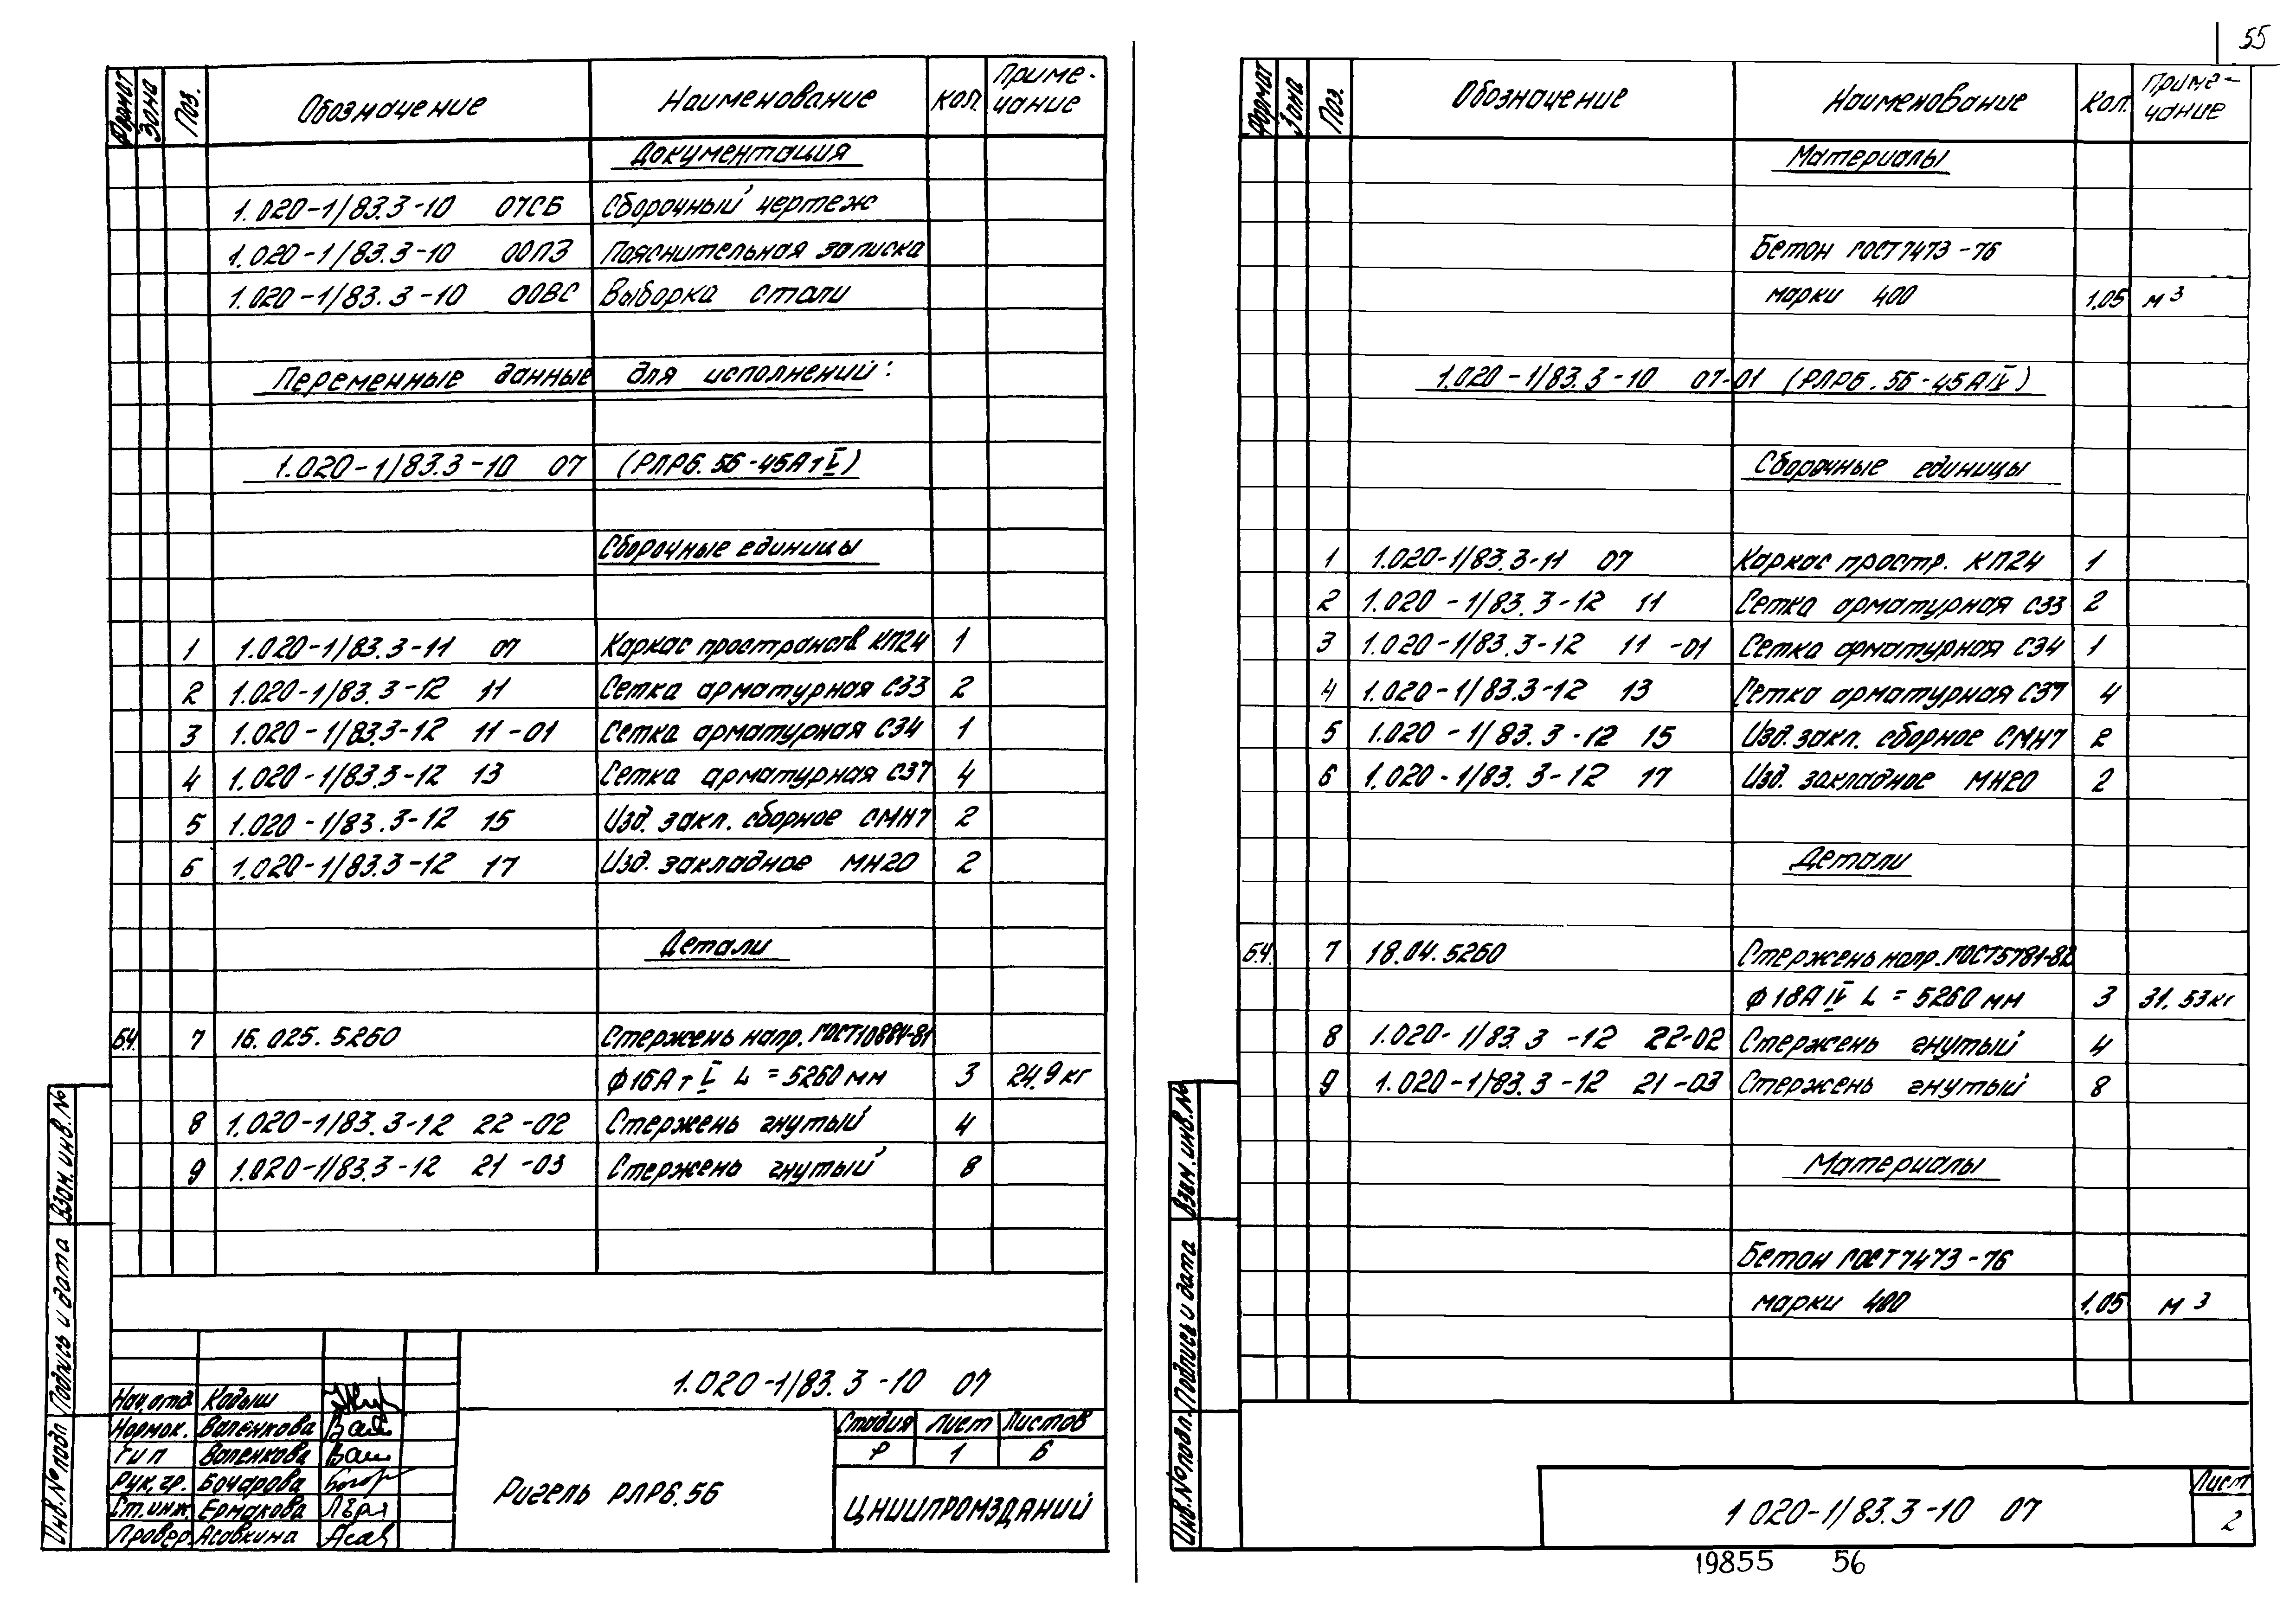 55
Формат Зона Поз. Обозначение Наименование Кол. Приме-чание
Документация
1.020-1/83.3-10 07СБ Сборочный чертеж
1.020-1/83.3-10 00ПЗ Пояснительная записка
1.020-1/83.3-10 00ВС Выборка стали
Переменные данные для исполнений:
1.020-1/83.3-10 07 (РЛР6.56-45АтV)
Сборочные единицы
1 1.020-1/83.3-11 07 Каркас пространств КП24 1
2 1.020-1/83.3-12 11 Сетка арматурная С33 2
3 1.020-1/83.3-12 11-01 Сетка арматурная С34 1
4 1.020-1/83.3-12 13 Сетка арматурная С37 4
5 1.020-1/83.3-12 15 Изд. закл. сборное СМН7 2
6 1.020-1/83.3-12 17 Изд. закладное МН20 2
Детали
БЧ. 7 16.025.5260 Стержень напр. ГОСТ10884-81
ф16АтV L=5260мм 3 24.9кг
8 1.020-1/83.3-12 22-02 Стержень гнутый 4
9 1.020-1/83.3-12 21-03 Стержень гнутый 8
Взам. инв. №
Подпись и дата
Инв. № подл
1.020-1/83.3-10 07
Нач.отд Кодыш
Нормок. Валенкова
ГИП Валенкова
Рук.гр. Бочарова
Ст.инж. Ермакова
Провер. Асавкина
Ригель РЛР6.56
Стадия Лист Листов
Р 1 6
ЦНИИПРОМЗДАНИЙ
Формат Зона Поз. Обозначение Наименование Кол. Приме-чание
Материалы
Бетон ГОСТ7473-76
марки 400 1.05 м3
1.020-1/83.3-10 07-01 (РЛР6.56-45АIV)
Сборочные единицы
1 1.020-1/83.3-11 07 Каркас простр. КП24 1
2 1.020-1/83.3-12 11 Сетка арматурная С33 2
3 1.020-1/83.3-12 11-01 Сетка арматурная С34 1
4 1.020-1/83.3-12 13 Сетка арматурная С37 4
5 1.020-1/83.3-12 15 Изд. закл. сборное СМН7 2
6 1.020-1/83.3-12 17 Изд. закладное МН20 2
Детали
БЧ. 7 18.04.5260 Стержень напр. ГОСТ5781-82
ф18АIV L=5260мм 3 31.53кг
8 1.020-1/83.3-12 22-02 Стержень гнутый 4
9 1.020-1/83.3-12 21-03 Стержень гнутый 8
Материалы
Бетон ГОСТ7473-76
марки 400 1.05 м3
Взам. инв. №
Подпись и дата
Инв. № подл.
1.020-1/83.3-10 07
Лист
2
19855 56